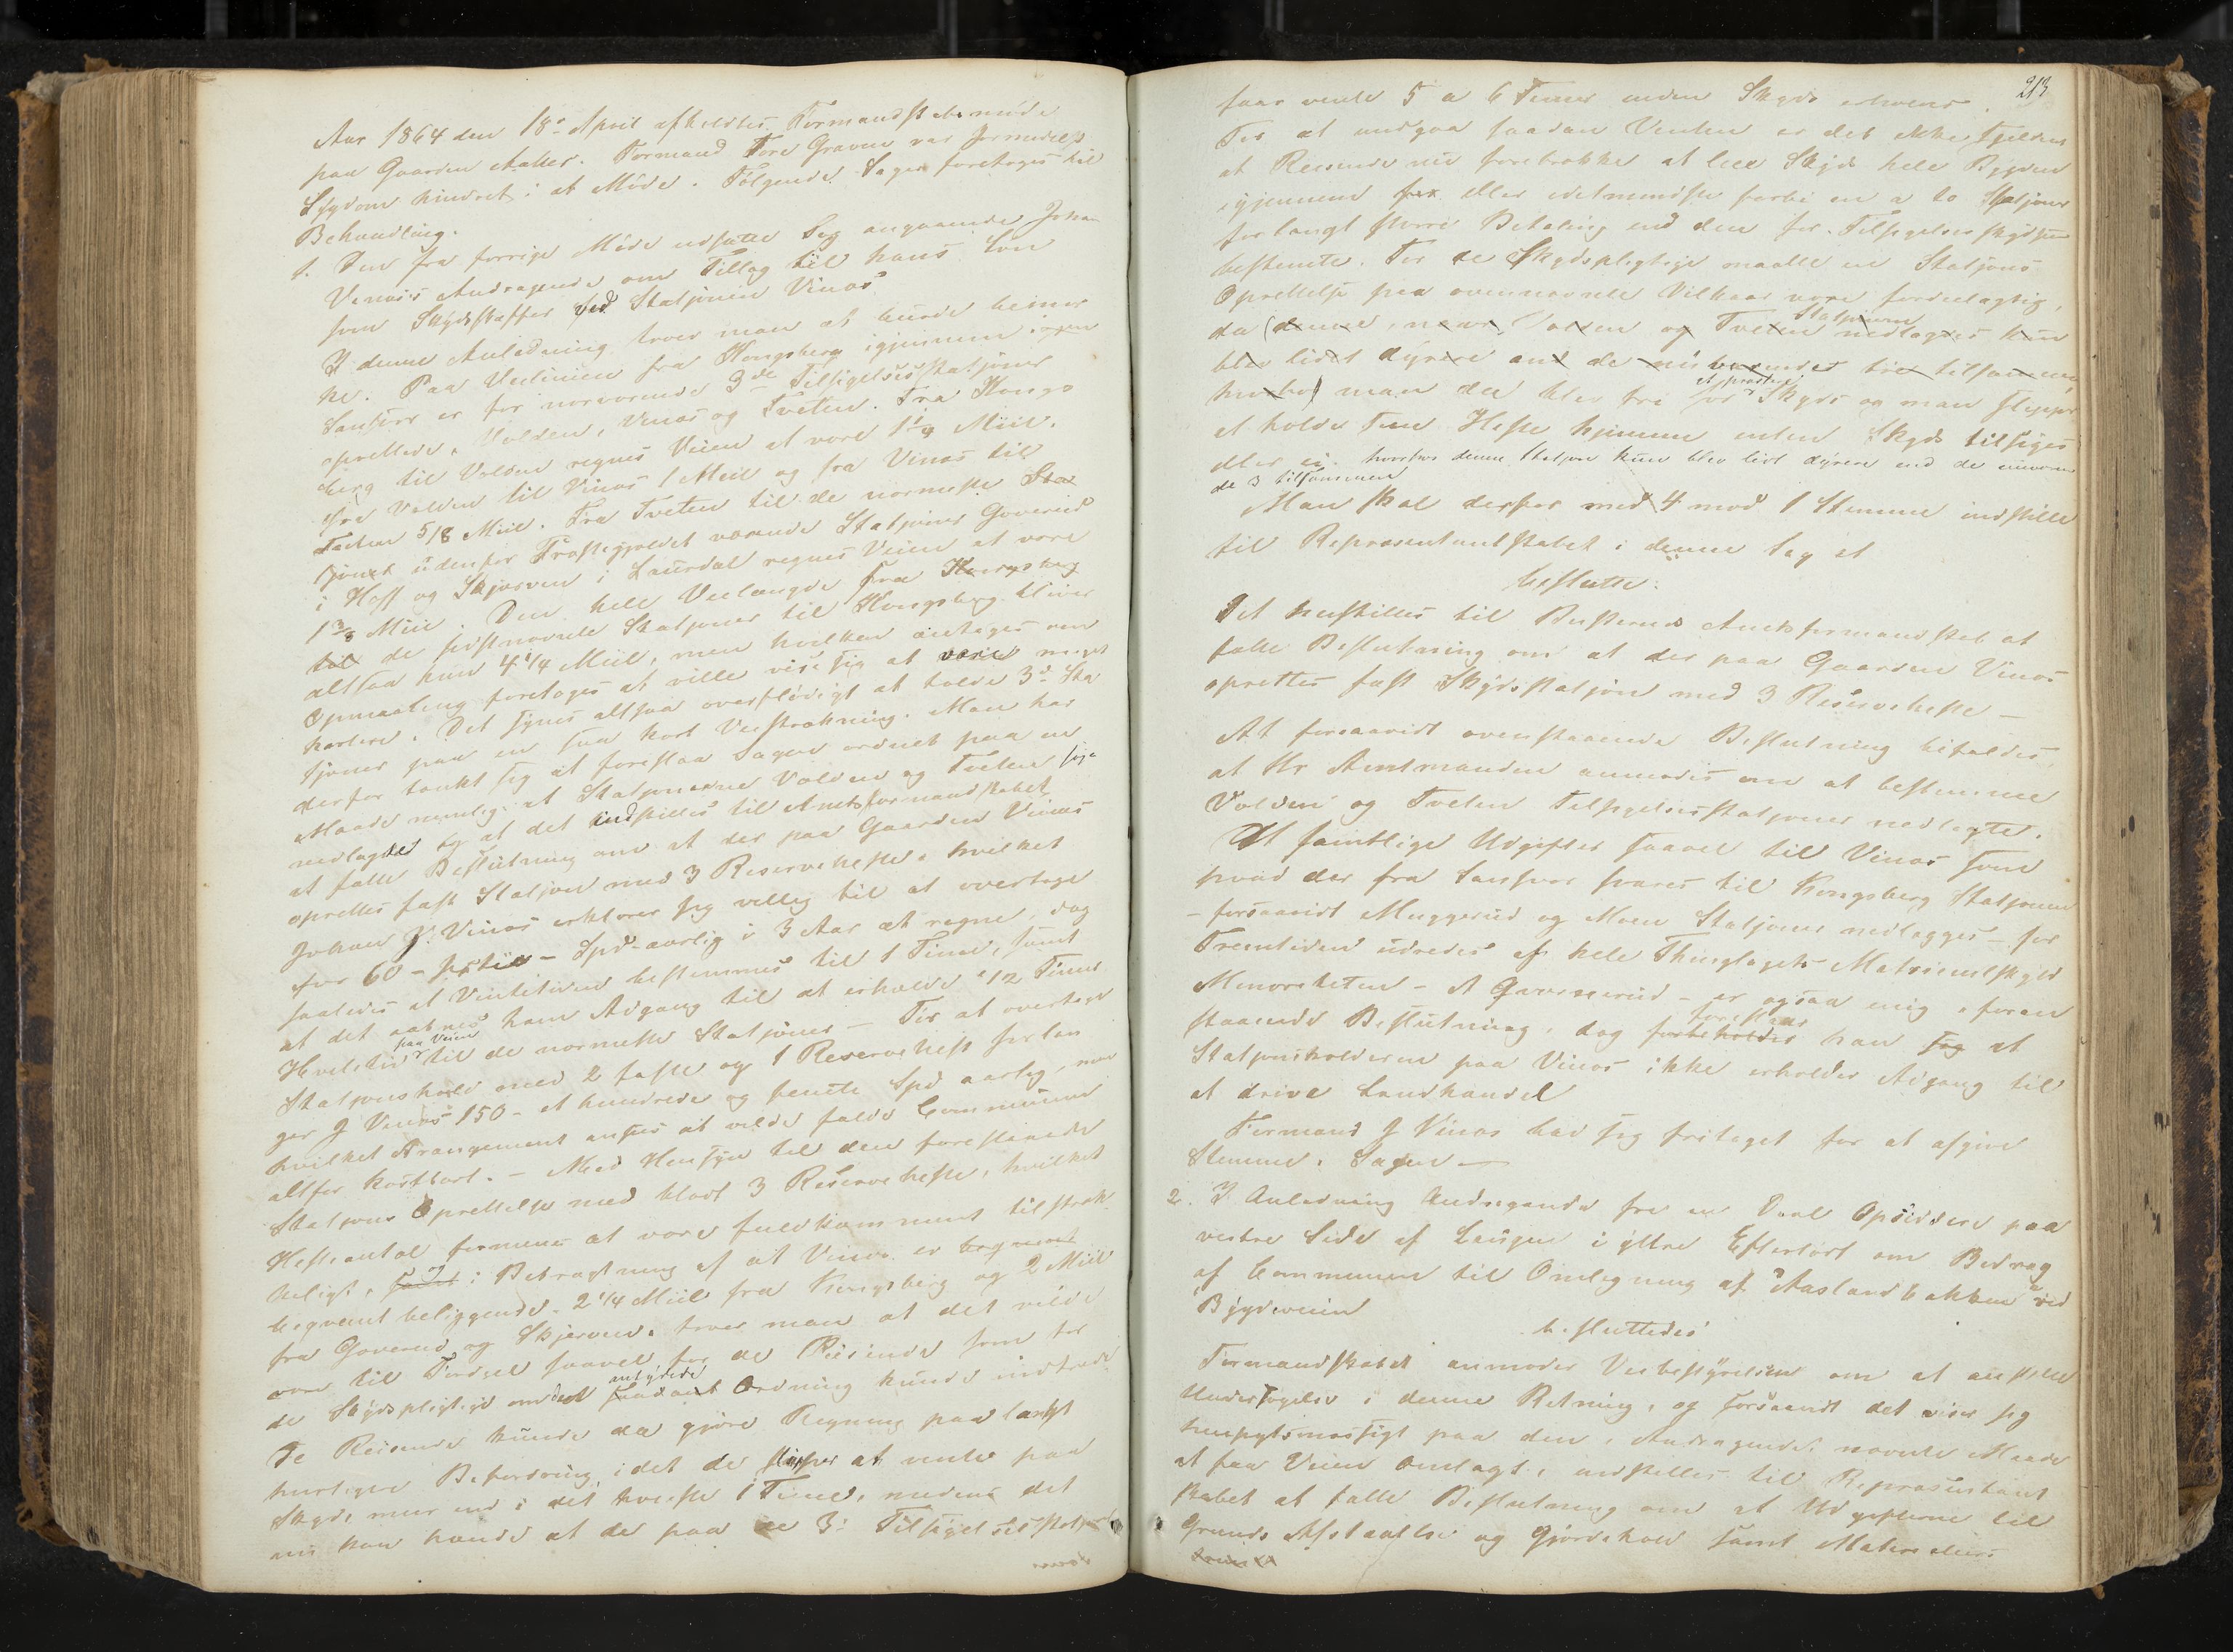 Aar 1864 den 18de April afholdtes Formandskabsmøde
paa Gaarden Aaker. Formand Tore Graven var formedelst
Sygdom hindret i at Møde. Følgende Sager foretoges til
Behandling.
1. Den fra forrige Møde udsatte Sag angaaende Johan
Vinæs's Andragende om Tillæg til hans Løn
som Skydsskaffer ved Stationen Vinæs
I denne Anledning troer man at burde bemær
ke. Paa Veilinien fra Kongsberg igjennem
Sandsvær er for nærværende 3de Tilsigelsesstatjoner
oprettede, Volden, Vinæs og Tveten. Fra Kongs
berg til Volden regnes Veien at være 1 1/4 Miil.
fra Volden til Vinæs 1 Miil og fra Vinæs til
Tveten 5/8 Miil. Fra Tveten til de nærmeste Sta
tjoner udenfor Præstegjeldet værende Statjoner Goverud
i Hoff og Skjærven i Laurdal regnes Veien at være
1 3/8 Miil. Den hele Veilængde fra Kongsberg
til de sidstnævnte Statjoner til Kongsberg bliver
altsaa kun 4 1/4 Miil, men hvilken antages ven
Opmaaling foretages at ville vise sig at være meget
kortere. Det synes altsaa overflødigt at holde 3de Sta
tjoner paa en saa kort Veistrækning. Man har
derfor tænkt sig at foreslaa Sagen ordnet paa en
Maade nemlig: at Statjonerne Volden og Tveten
nedlagdes og at det indstilles til Amtsformandskabet
at fatte Beslutning om at der paa Gaarden Vinæs
oprettes fast Statjon med 3 Reserveheste. hvilket
Johan J. Vinæs erklærer sig villig til at overtage
for 60 - sexti - Spd aarlig i 3 Aar at regne, dog
saaledes at Ventetiden bestemmes til 1 Time, samt
at det aabnes ham Adgang til at erholde 1/2 Times
Hviletid paa Veien til de nærmeste Statjoner – For at overtage
Statjonshold med 2 faste og 1 Reservehest forlan
ger J Vinæs 150 - et hundrede og femti Spd aarlig,
hvilket Arangement ansees at ville falde Communen
altfor kostbart. – Med Hensyn til den foreslaaede
Statjons Oprettelse med blot 3 Reserveheste, hvilket
Hesteantal formenes at være fuldkomment tilstræk
keligt, i Betragtning af at Vinæs er
beqvemt beliggende. 2 1/4 Miil fra Kongsberg og 2 Miil
fra Goverud og Skjærven. troer man at det vilde
være til Fordeel saavel for de Reisende som for
de Skydspligtige om den antydede Ordning kunde indtræde
De Reisende kunde da gjøre Regning paa langt
hurtigere Befordring, idet de slipper at vente paa
Skyds meer end i det høieste 1 Time, medens det
nu kan hænde at de paa de 3de Tilsigelsesstatjoner
213
faar vente 5 a 6 Timer inden Skyds erholdes.
For at undgaa saadan Venten er det ikke sjelden
at Reisende nu foretrække at leie Skyds hele Bygden
igjennem eller idetmindste forbi en a to Statjoner
for langt større Betaling end den for Tilsigelsesskydsen
bestemte. For de Skydspligtige maatte en Statjons
Oprettelse paa ovennævnte Vilkaar være fordeelagtig,
da (denne, naar Volden og Tveten Statjoner nedlagdes kun
blev lidet dyrere end de nuværende tre tilsammen,
hvorhos man da blev fri for at præstere Skyds og man slipper
at holde sine Heste hjemme enten Skyds tilsiges
eller ei. hvorhos denne Statjon kun blev lidt dyrere end de nuværen
de 3 tilsammen
Man skal derfor med 4 mod 1 Stemme indstille
til Repræsentantskabet i denne Sag at
beslutte:
Det henstilles til Buskeruds Amtsformandskab at
fatte Beslutning om at der paa Gaarden Vinæs
oprettes fast Skydsstatjon med 3 Reserveheste –
At forsaavidt ovenstaaende Beslutning bifaldes,
at Hr Amtmanden anmodes om at bestemme
Volden og Tveten Tilsigelsesstatjoner nedlagte.
At samtlige Udgifter saavel til Vinæs som
hvad der fra Sandsvær svares til Kongsberg Statjonen
– forsaavidt Muggerud og Moen Statjoner nedlægges – for
Fremtiden udredes af hele Thinglagets Matrikulskyld
Minoriteten – A Qværnerud – er ogsaa enig i foran
staaende Beslutning, dog foreslaar han at
Statjonsholderen paa Vinæs ikke erholder Adgang til
at drive Landhandel
Formand J Vinæs bad sig fritaget for at afgive
Stemme i Sagen –
2. I Anledning Andragende fra en Deel Opsiddere paa
vestre Side af Laugen i ytre Efteløt om Bidrag
af Communen til Omlægning af Aaslandbakken ved
Bygdeveien
besluttedes
Formandskabet anmoder Veibestyrelsen om at anstille
Undersøgelse i denne Retning, og forsaavidt det viser sig
hensigtsmæssigt paa den i Andragendet nævnte Maade
at faa Veien omlagt, indstilles til Repræsentant
skabet at fatte Beslutning om at Udgifterne til
Grunds Afstaaelse og Gjærdehold samt Materialiers